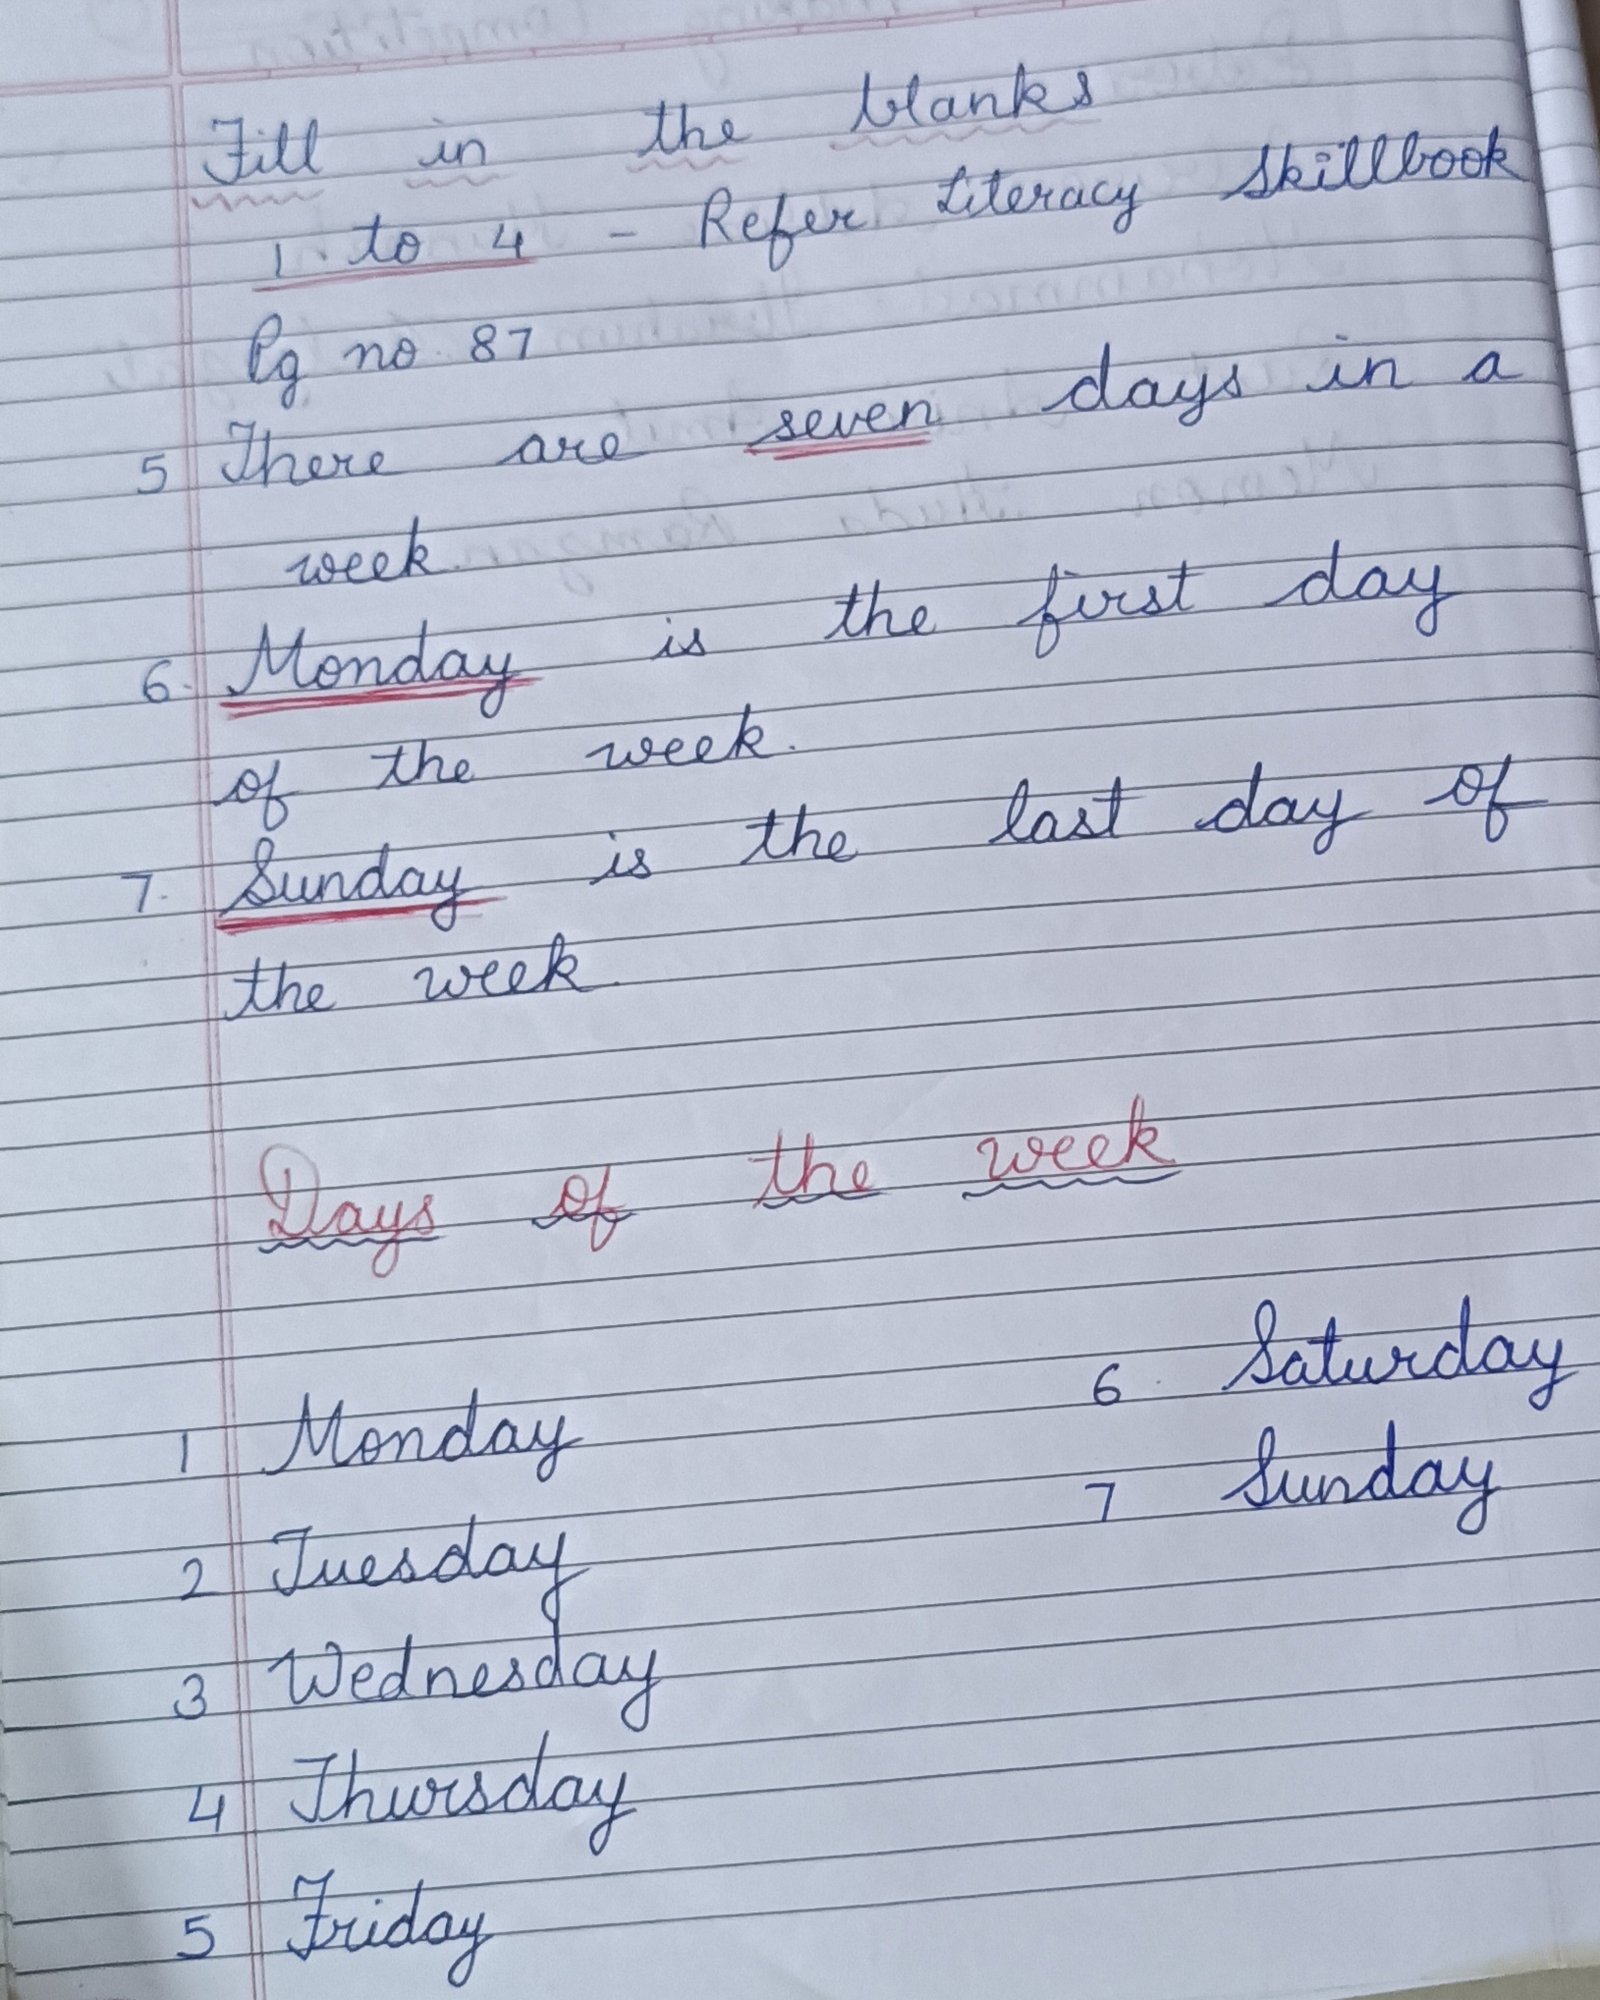 Fill in the blanks
1 to 4 - Refer Literacy Skillbook
Pg no. 87
5 There are seven days in a
week.
6. Monday is the first day
of the week.
7. Sunday is the last day of
the week.
Days of the week
1 Monday
2 Tuesday
3 Wednesday
4 Thursday
5 Friday
6. Saturday
7 Sunday